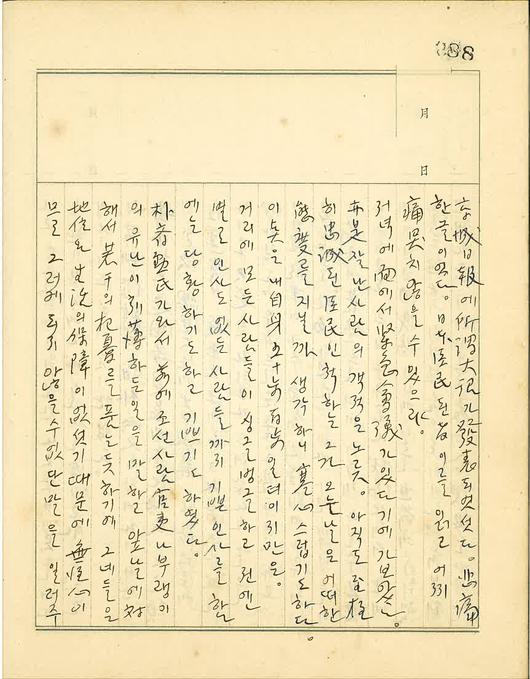 088
月
日
京城日報에 所謂 大詔가 發表되엿섯다。悲痛
한 글이였다。日本臣民된 者 이글을 읽고 어찌
痛哭치 않을 수 있으랴。
저녁에 面에서 緊急會議가 있다기에 가보았슴。
亦是 잘난사람의 객적은 노릇。아직도 至極
히 忠誠된 臣民인 척하는 그가 오늘날을 어떠한
지닐까 생각하니 寒心스럽기도하다。
내自身 五十步百步일터이지만은。
거리에 모든사람들이 싱글벙글하고 전엔
별로 인사도 없든 사람들까지 기쁜 인사를 함
에는 당황하기도하고 기쁘기도 하였다。
와서 前에 조선사람 官吏나부랭이
의 유난이 刻薄하든일을 말하고 앞날에 対
해서 若干의 杞憂를 품는듯하기에 그네들은
地位와 生活의 保障이 없섯기때문에
그러케 되지 않을수없단 말을 일러주